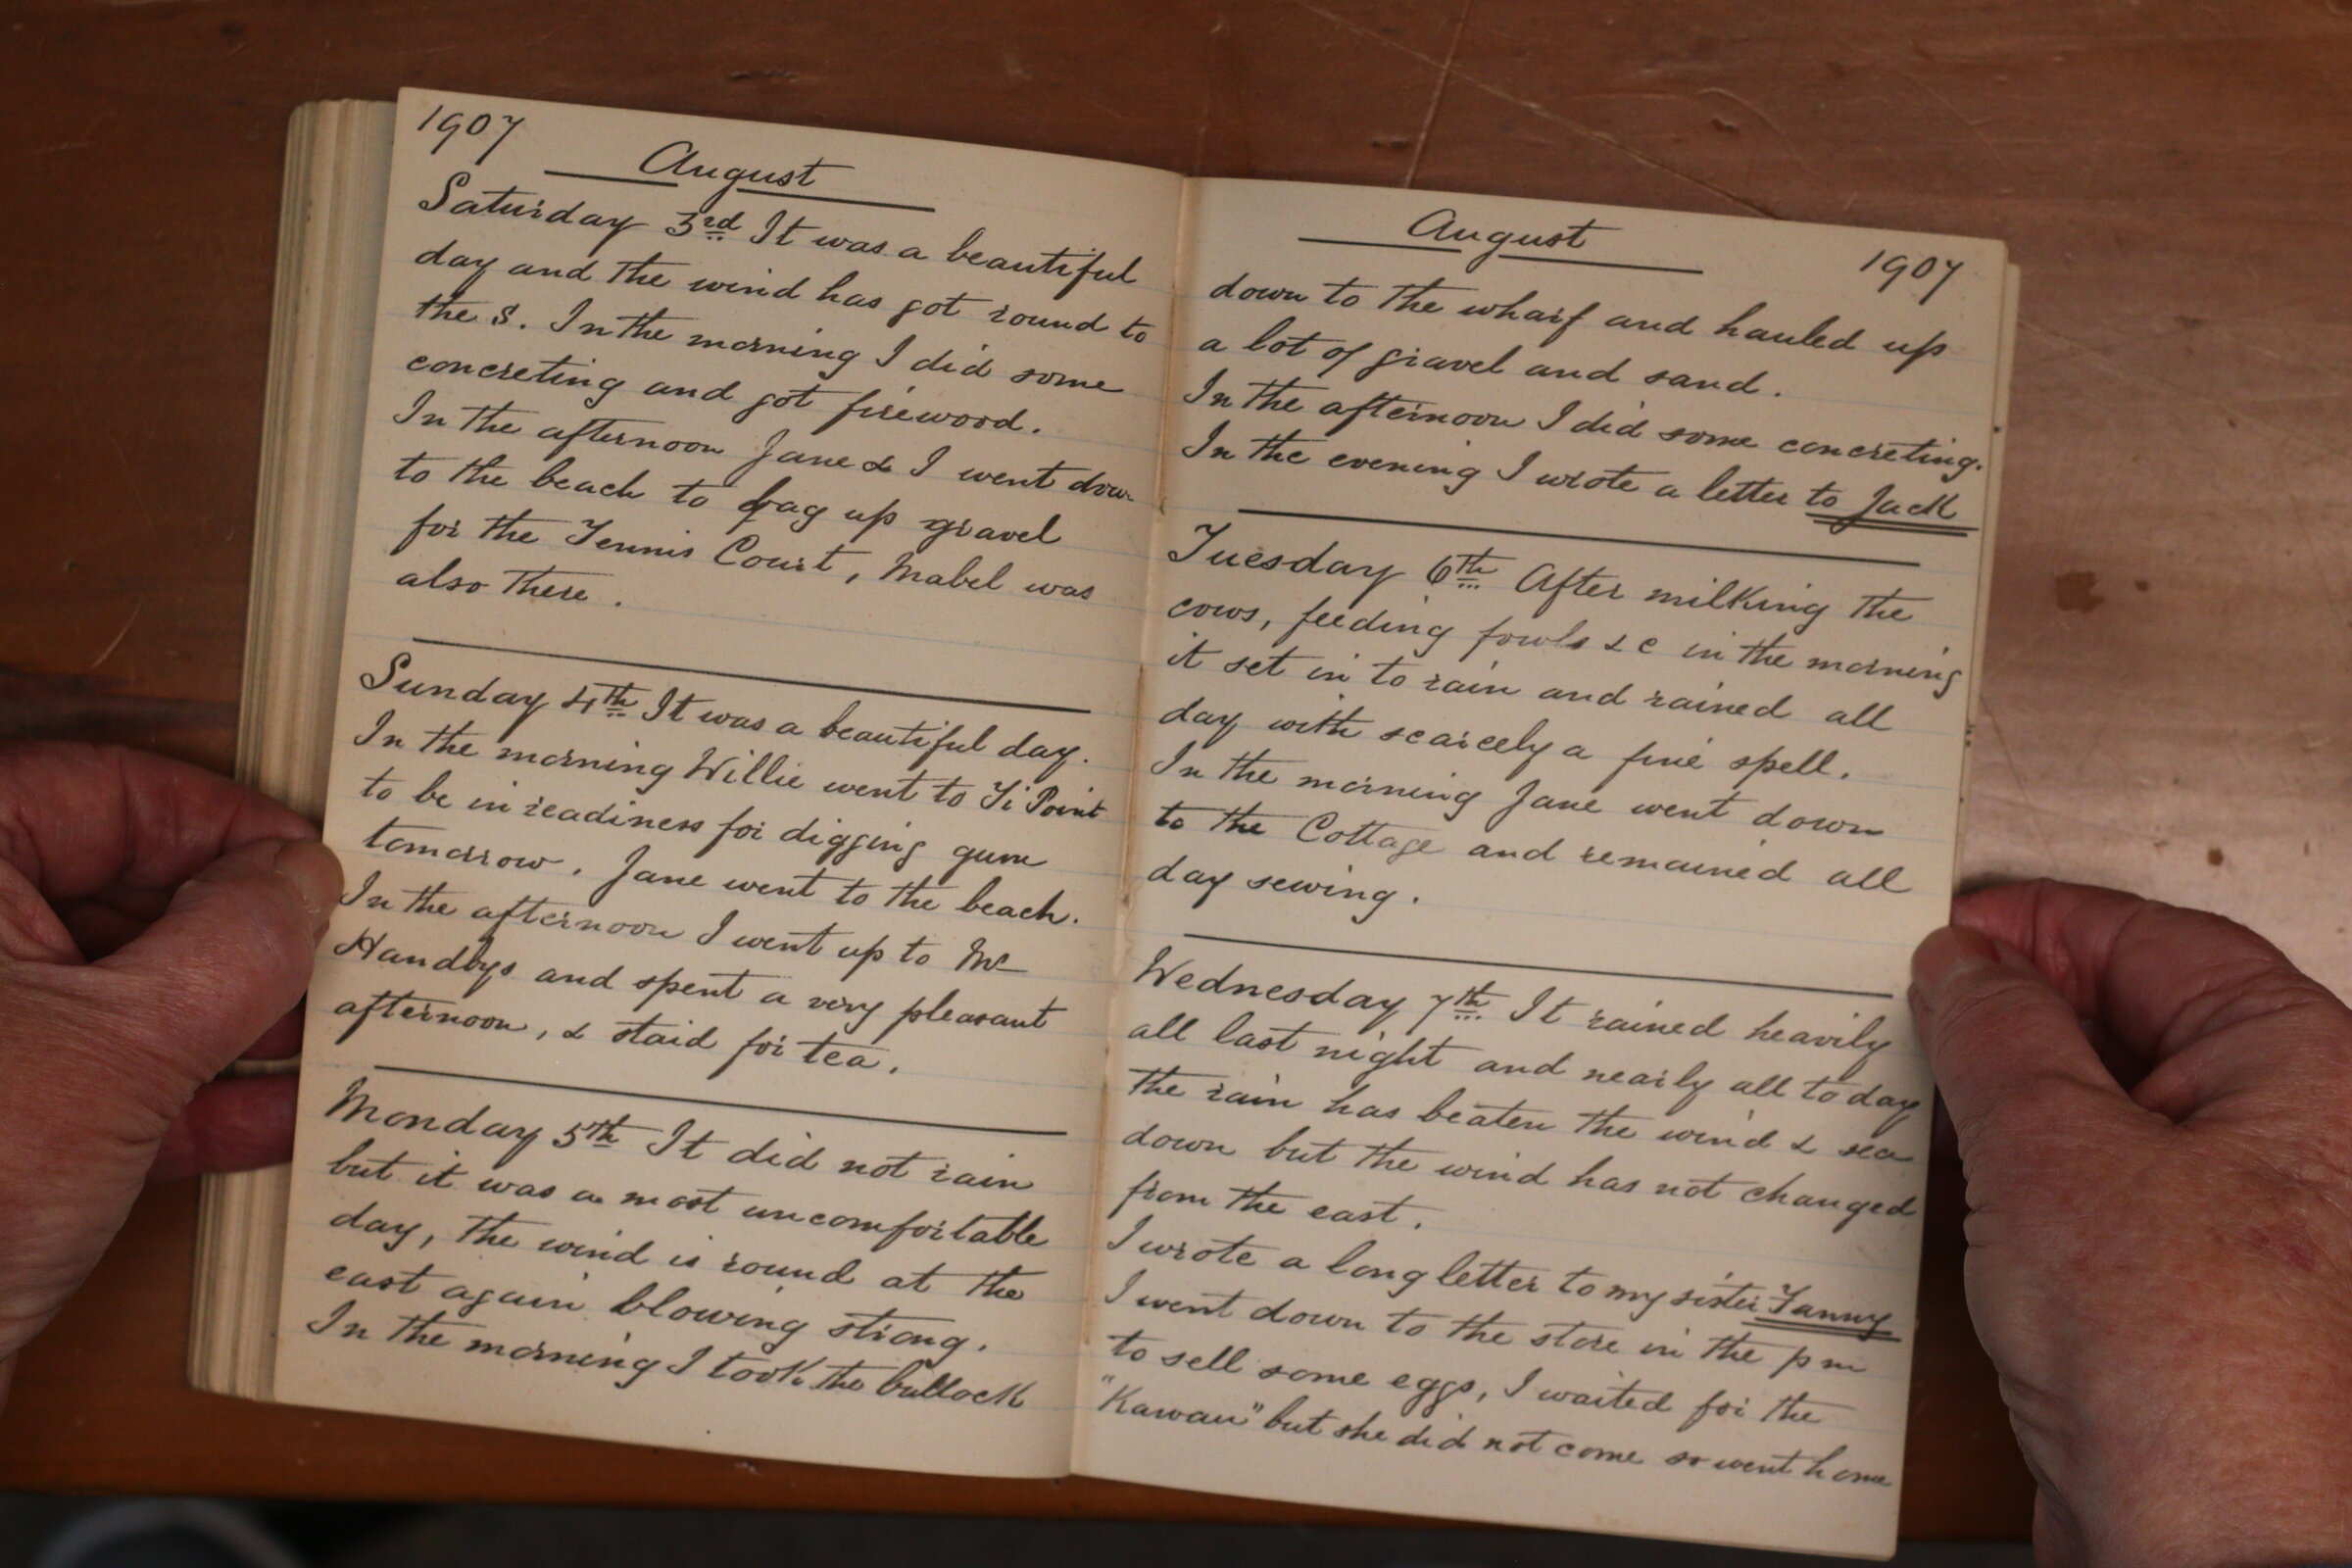 1907
August
Saturday 3rd It was a beautiful
day and the wind has got round to
the S. In the morning I did some
concreting and got firewood.
In the afternoon Jane & I went down
to the beach to bag up gravel
for the Tennis Court, Mabel was
also there.
Sunday 4th It was a beautiful day.
In the morning Willie went to Ti Point
to be in readiness for digging gum
tomorrow. Jane went to the beach.
In the afternoon I went up to Mr
Handlys and spent a very pleasant
afternoon, & staid for tea.
Monday 5th It did not rain
but it was a most uncomfortable
day, the wind is round at the
east again blowing strong.
In the morning I took the bullock
August
1907
down to the wharf and hauled up
a lot of gravel and sand.
In the afternoon I did some concreting.
In the evening I wrote a letter to Jack
Tuesday 6th After milking the
cows, feeding fowls &c in the morning
it set in to rain and rained all
day with scarcely a fine spell.
In the morning Jane went down
to the Cottage and remained all
day sewing.
Wednesday 7th It rained heavily
all last night and nearly all today
the rain has beaten the wind & sea
down but the wind has not changed
from the east.
I wrote a long letter to my sister Fanny
I went down to the store in the pm
to sell some eggs, I waited for the
"Kawau" but she did not come so went home